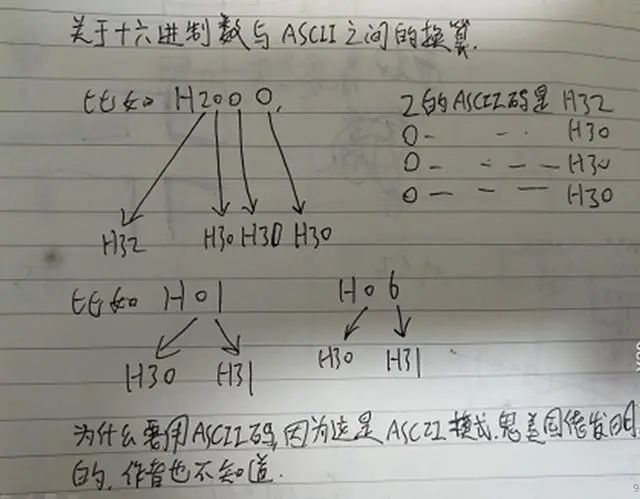 关于十六进制数与ASCII之间的换算.
比如 H2000, 2的ASCII码是 H32
0 - - - H30
0 - - - - H30
0 - - - H30
H32 H30 H30 H30
比如 H01 H06
H30 H31 H30 H31
为什么要用ASCII码,因为这是ASCII模式,鬼美国佬发明
的,作者也不知道.